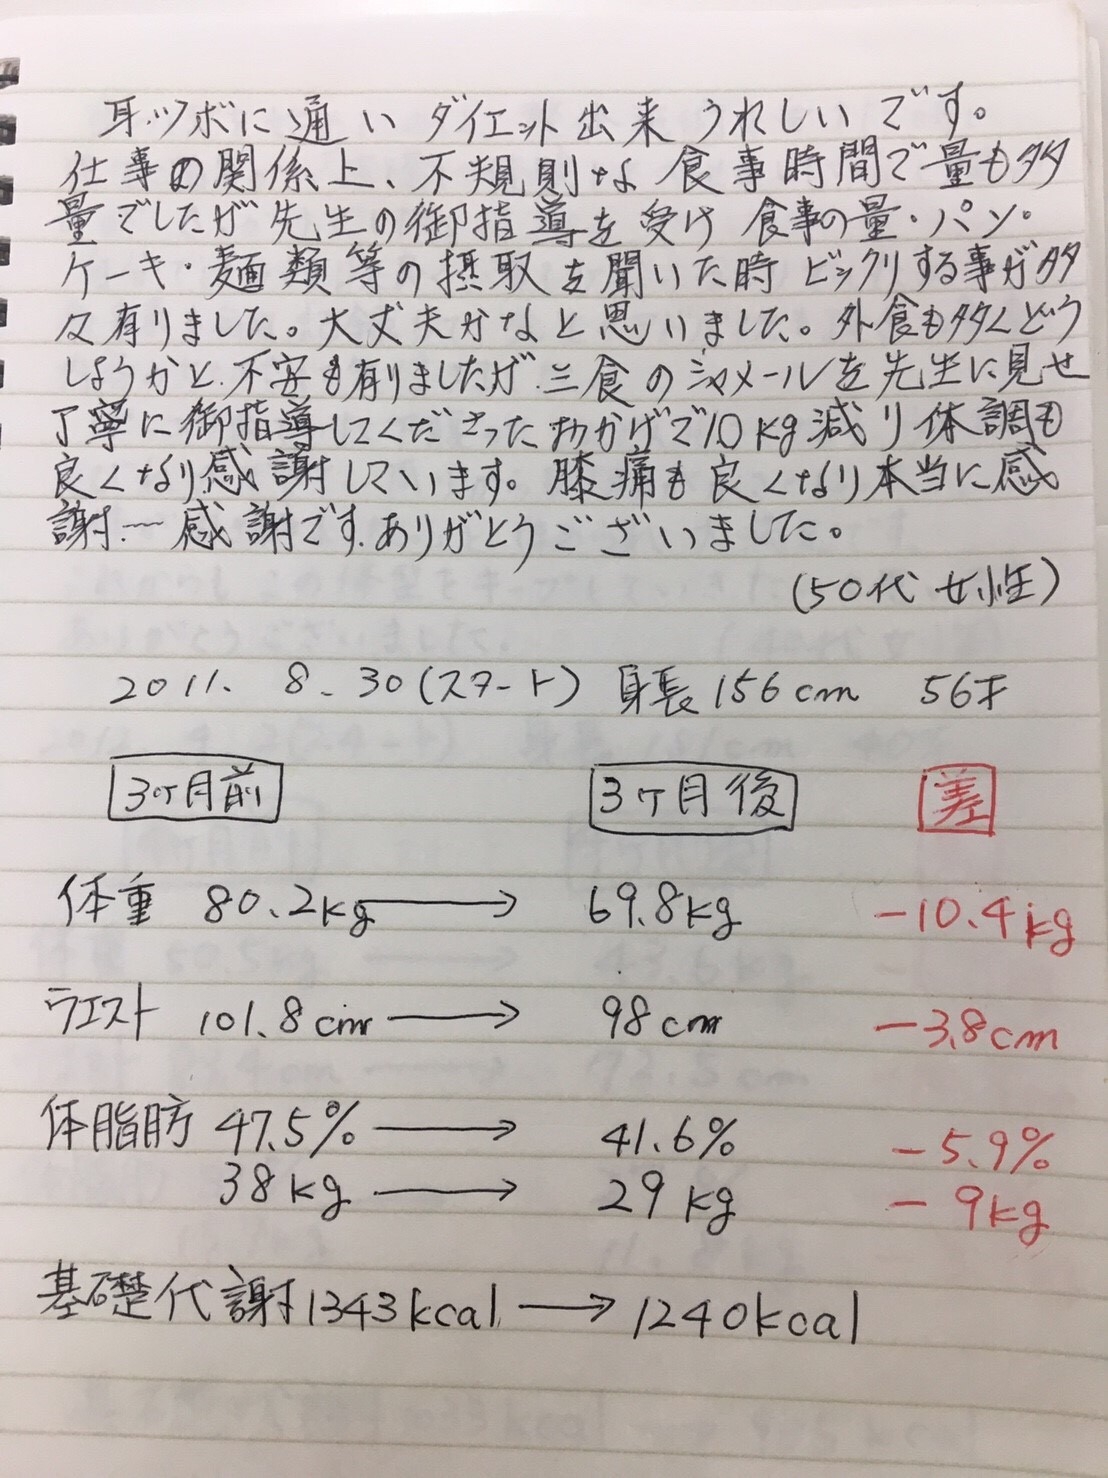 耳ツボに通い ダイエット出来 うれしいです。
仕事の関係上、不規則な 食事時間で量も多
量でしたが先生の御指導を受け 食事の量・パン・
ケーキ・麺類等の摂取を聞いた時 ビックリする事が多
々有りました。大丈夫かなと思いました。外食も多くどう
しようかと、不安も有りましたが、三食の写メールを先生に見せ
丁寧に御指導してくださったおかげで10kg減り体調も
良くなり感謝しています。膝痛も良くなり本当に感
謝…感謝です。ありがとうございました。
(50代 女性)
2011. 8.30(スタート) 身長156cm 56才
3ヶ月前 3ヶ月後 差
体重 80.2kg → 69.8kg −10.4kg
ウエスト 101.8cm → 98cm −3.8cm
体脂肪 47.5% → 41.6% −5.9%
38kg → 29kg −9kg
基礎代謝1343kcal → 1240kcal